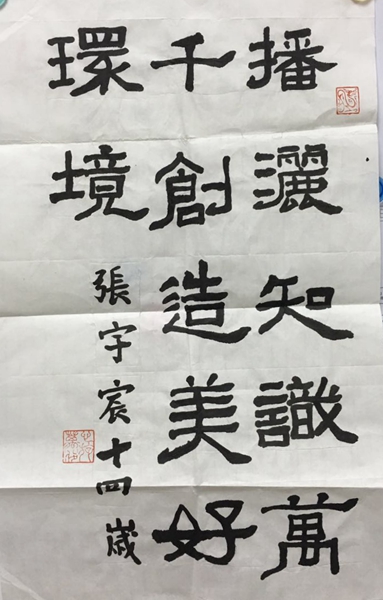 播灑知識萬
千創造美好
環境
張宇宸十四歲